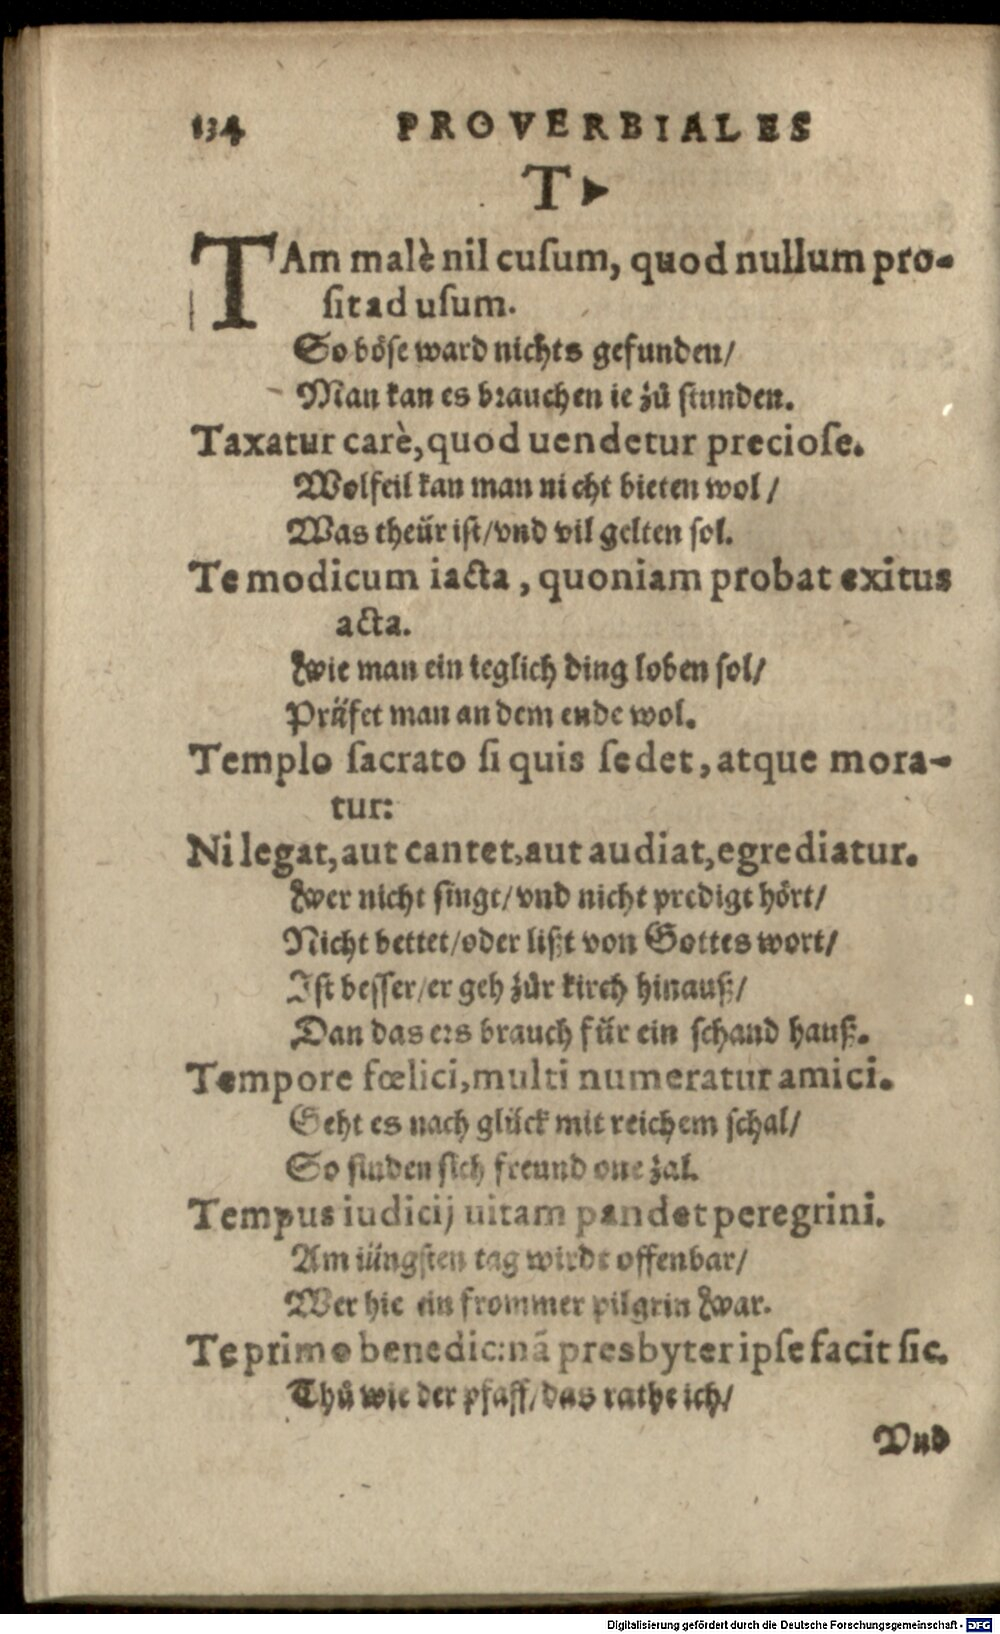 134 PROVERBIALES
T
TAm malè nil cuſum, quod nullum pro-
ſit ad uſum.
So bo&#868;ſe ward nichts gefunden/
Man kan es brauchen ie zů ſtunden.
Taxatur carè, quod uendetur precioſe.
Wolfeil kan man nicht bieten wol /
Was theür iſt/vnd vil gelten ſol.
Te modicum iacta, quoniam probat exitus
acta.
Zwie man ein ieglich ding loben ſol/
Präfet man an dem ende wol.
Templo ſacrato ſi quis ſedet, atque mora-
tur:
Ni legat, aut cantet, aut audiat, egrediatur.
Zwer nicht ſingt/vnd nicht predigt hört/
Nicht bettet/oder lißt von Gottes wort/
Iſt beſſer/er geh zůr kirch hinauß/
Dan das ers brauch für ein ſchand hauß.
Tempore fœlici, multi numeratur amici.
Geht es nach glück mit reichem ſchal/
So finden ſich freund one zal.
Tempus iudicij uitam pandet peregrini.
Am iüngſten tag wirdt offenbar/
Wer hie ein frommer pilgrin zwar.
Te primo benedic: nã presbyter ipſe facit ſic.
Thů wie der pfaff/das rathe ich/
Vnd
Digitalisierung gefördert durch die Deutsche Forschungsgemeinschaft - DFG